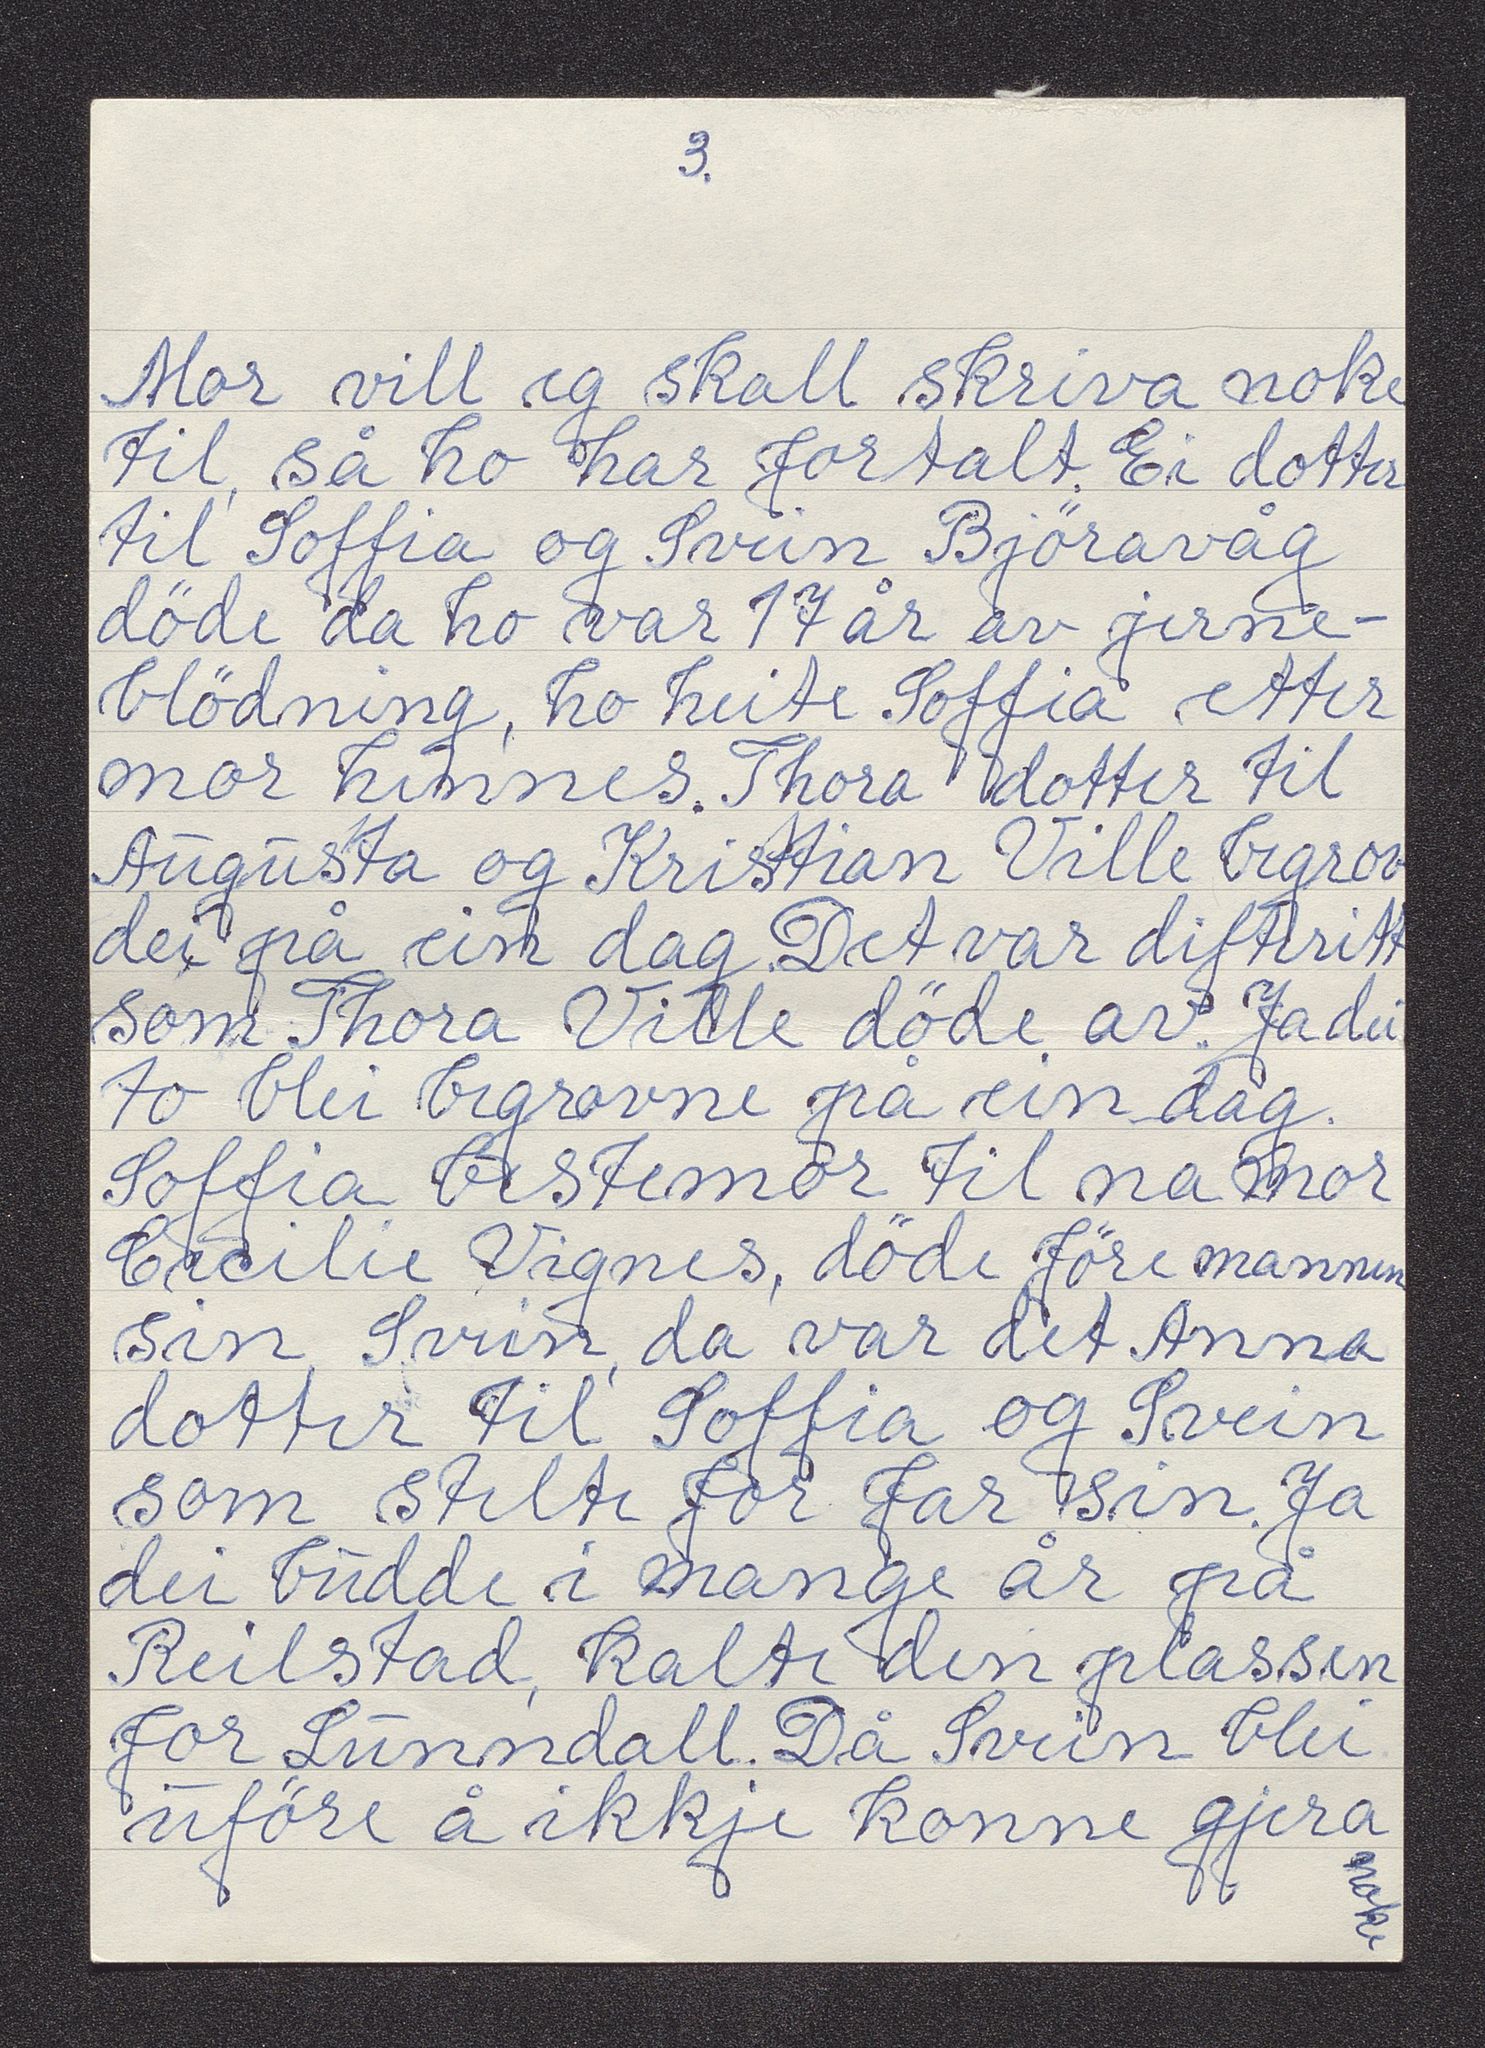 3.
Mor vill eg skall skriva noke
til, så ho har fortalt. Ei dotter
til Soffia og Svein Björavåg
döde da ho var 17 år av jerne-
blödning, ho heite Soffia etter
mor hennes. Thora dotter til
Augusta og Kristian Ville begrov
dei på ein dag. Det var difteritt
som Thora Ville döde av. Ja dei
to blei begravne på ein dag.
Soffia bestemor til na mor
Cecilie Vignes, döde före mannen
sin Svein, da var det Anna
dotter til Soffia og Svein
som stelte for far sin. Ja
dei budde i mange år på
Reilstad, kalte den plassen
for Lunndall. Då Svein blei
uföre å ikkje konne gjera
noke